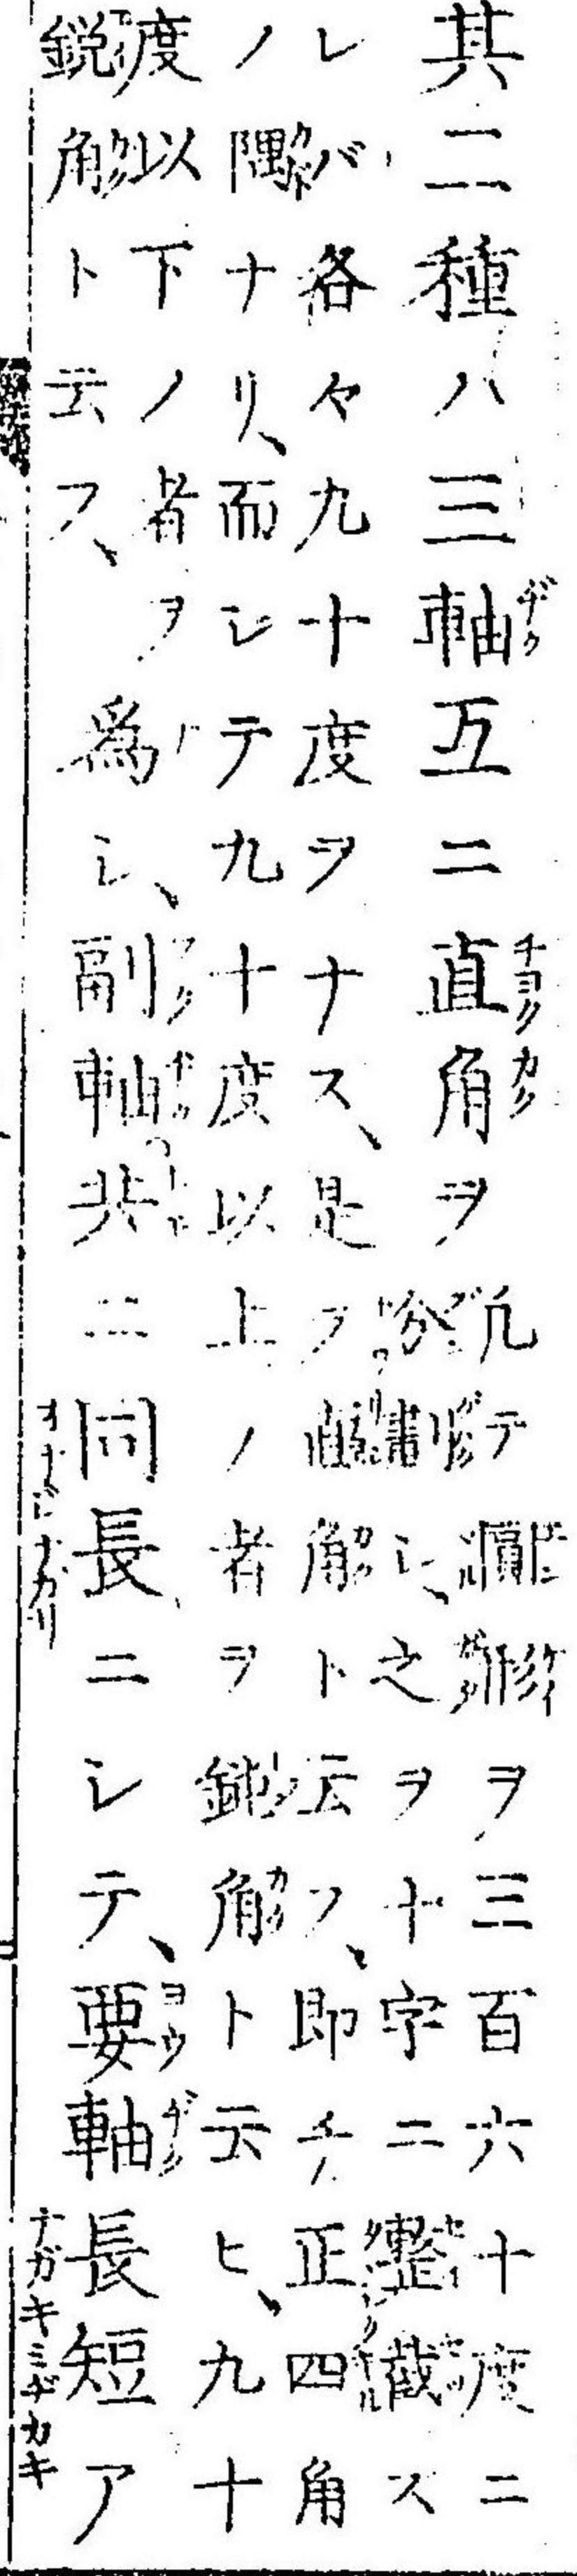 其二種ハ三軸互ニ直角ヲ
凡テ圓形ヲ三百六十度ニ
分劃シ、之ヲ十字ニ整截ス
レバ各々九十度ヲナス、是ヲ直角ト云フ、即チ正四角
ノ隅ナリ、而シテ九十度以上ノ者ヲ鈍角ト云ヒ、九十
度以下ノ者ヲ
鋭角ト云フ、
爲シ、副軸共ニ同長ニシテ、要軸長短ア
ナガキミヂカキ